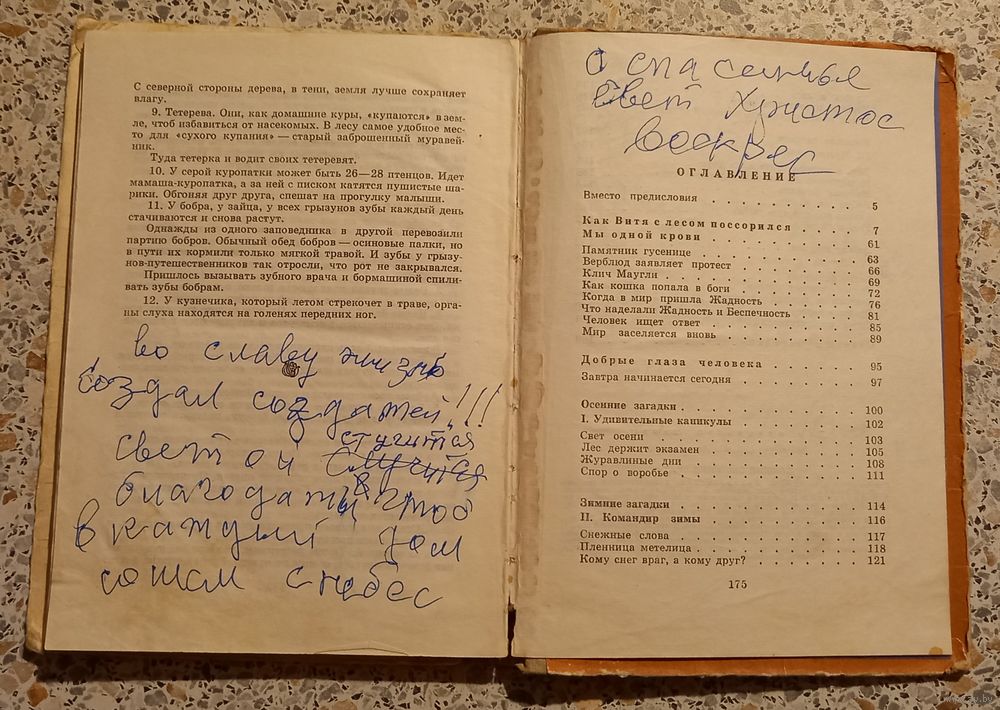 С северной стороны дерева, в тени, земля лучше сохраняет
влагу.
9. Тетерева. Они, как домашние куры, «купаются» в зем-
ле, чтоб избавиться от насекомых. В лесу самое удобное мес-
то для «сухого купания» — старый заброшенный муравей-
ник.
Туда тетерка и водит своих тетеревят.
10. У серой куропатки может быть 26—28 птенцов. Идет
мамаша-куропатка, а за ней с писком катятся пушистые ша-
рики. Обгоняя друг друга, спешат на прогулку малыши.
11. У бобра, у зайца, у всех грызунов зубы каждый день
стачиваются и снова растут.
Однажды из одного заповедника в другой перевозили
партию бобров. Обычный обед бобров — осиновые палки, но
в пути их кормили только мягкой травой. И зубы у грызу-
нов-путешественников так отросли, что рот не закрывался.
Пришлось вызывать зубного врача и бормашиной спили-
вать зубы бобрам.
12. У кузнечика, который летом стрекочет в траве, орга-
ны слуха находятся на голенях передних ног.
во славу
создал !!!
стучится
свет он
благодать чтоб
в каждый дом
с небес
спасенья
свет Христос
воскрес
ОГЛАВЛЕНИЕ
Вместо предисловия 5
Как Витя с лесом поссорился 7
Мы одной крови 61
Памятник гусенице 63
Верблюд заявляет протест 66
Клич Маугли 69
Как кошка попала в боги 72
Когда в мир пришла Жадность 76
Что наделали Жадность и Беспечность 81
Человек ищет ответ 85
Мир заселяется вновь 89
Добрые глаза человека 95
Завтра начинается сегодня 97
Осенние загадки 100
I. Удивительные каникулы 102
Свет осени 103
Лес держит экзамен 105
Журавлиные дни 108
Спор о воробье 111
Зимние загадки 114
II. Командир зимы 116
Снежные слова 117
Пленница метелица 118
Кому снег враг, а кому друг? 121
175